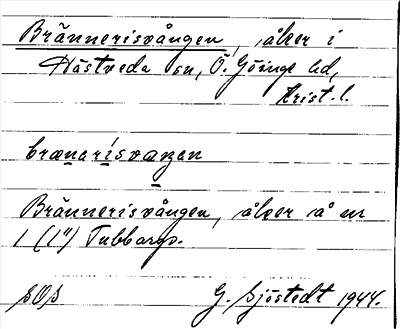 Brännerisvången, åker i
Hästveda sn, Ö. Göinge hd,
Krist. l.
brænarisvaŋen
Brännerisvången, åker å nr
1 (1") Tubbarp.
SOS G. Sjöstedt 1944.